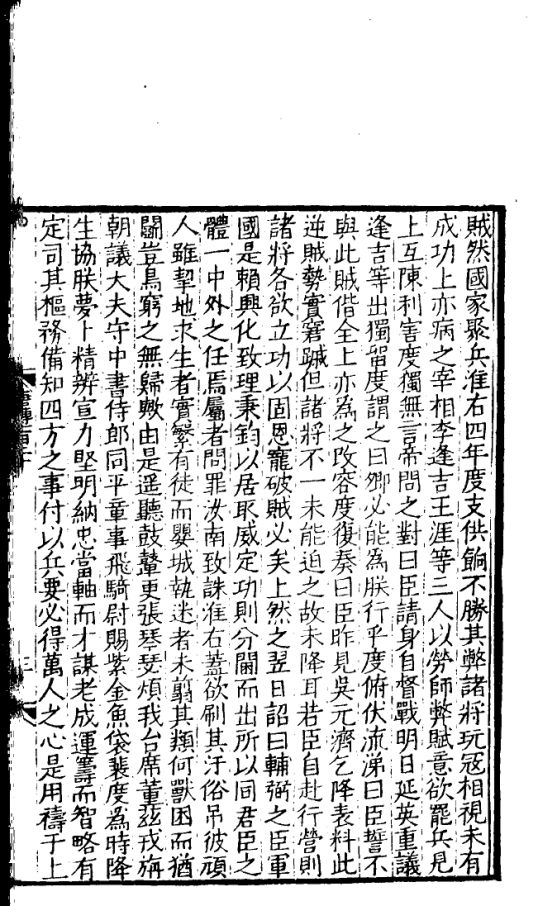 賊然國家聚兵淮右四年度支供餉不勝其弊諸將玩宼相視未有
成功上亦病之宰相李逢吉王涯等三人以勞師弊賦意欲罷兵見
上互陳利害度獨無言帝問之對曰臣請身自督戰明日延英重議
逢吉等出獨留度謂之曰卿必能為朕行乎度俯伏流涕曰臣誓不
與此賊偕全上亦為之改容度復奏曰臣昨見吳元濟乞降表料此
逆賊勢實窘蹴但諸將不一未能迫之故未降耳若臣自赴行營則
諸將各欲立功以固恩寵破賊必矣上然之翌日詔曰輔弼之臣軍
國是賴興化致理秉鈞以居取威定功則分閫而出所以同君臣之
體一中外之任焉屬者問罪汝南致誅淮右蓋欲刷其汙俗吊彼頑
人雖挈地求生者實繁有徒而嬰城執迷者未翦其類何獸困而猶
鬬豈鳥窮之無歸歟由是遥聽鼓鼙更張琴瑟煩我台席董兹戎旃
朝議大夫守中書侍郎同平章事飛騎尉賜紫金魚袋裴度為時降
生協朕夢卜精辨宣力堅明納忠當軸而才謀老成運籌而智略有
定司其樞務備知四方之事付以兵要必得萬人之心是用禱于上